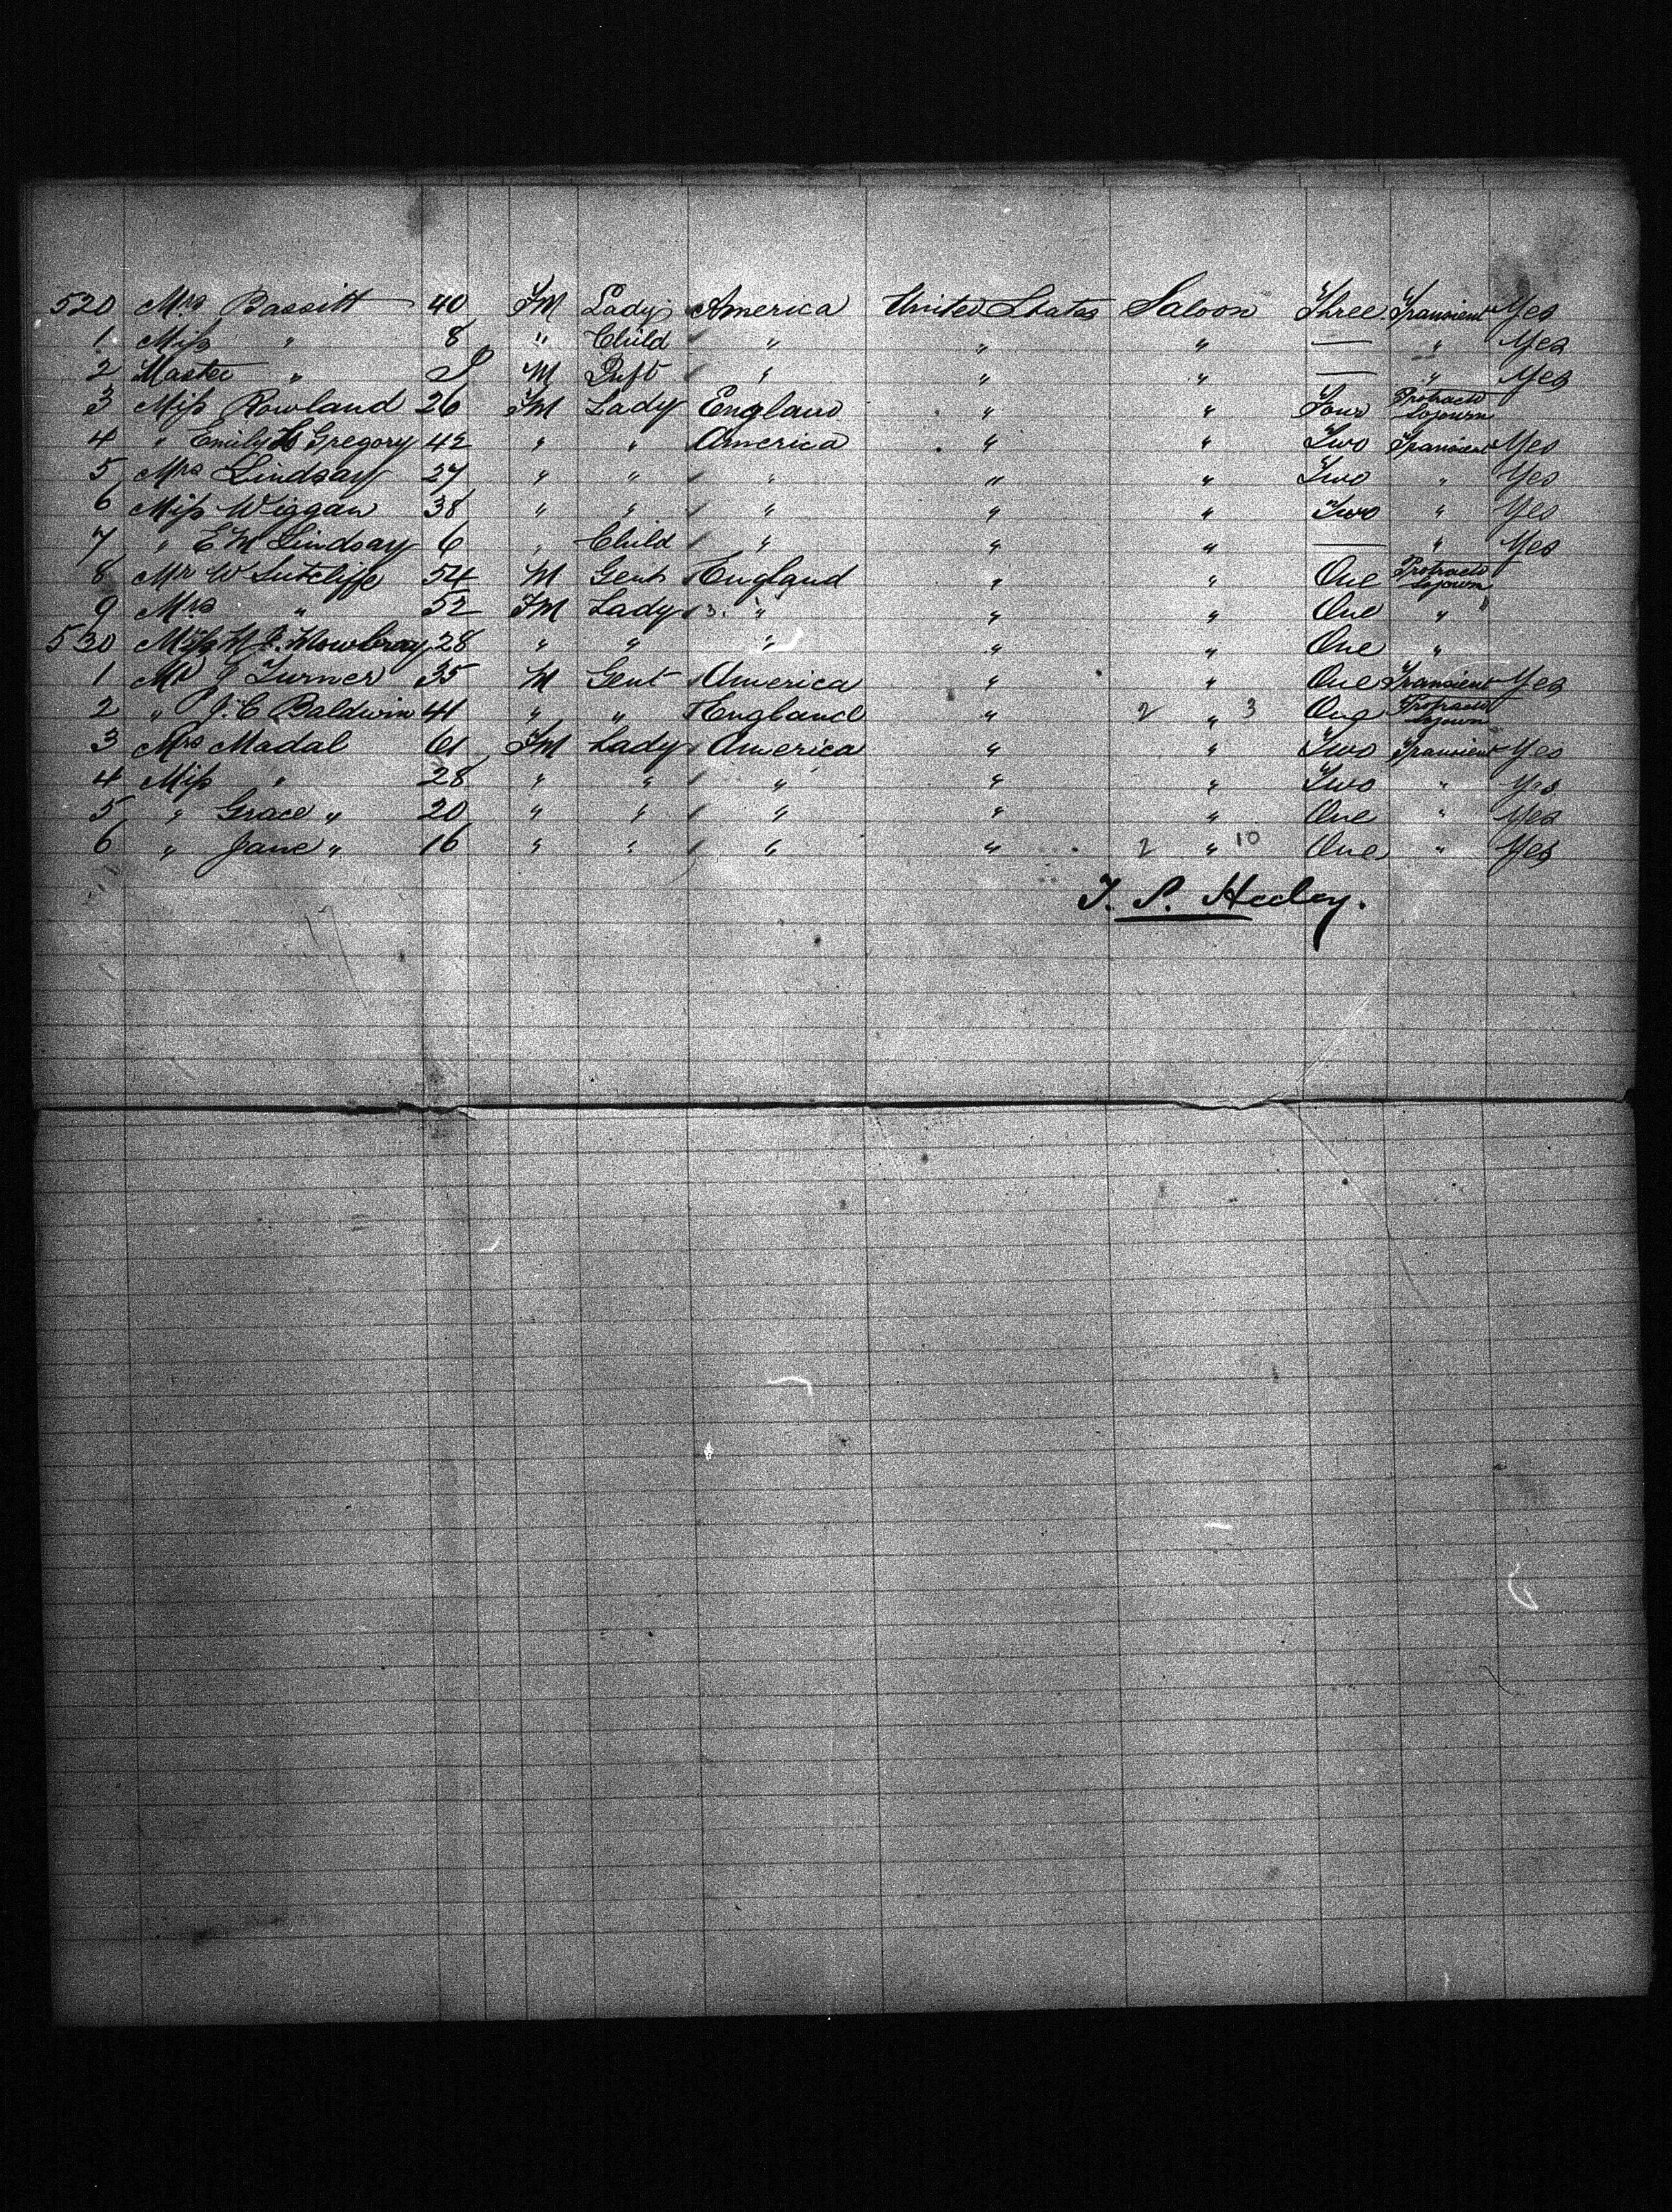 520 Mrs Bassitt 40 FM Lady America United States Saloon Three Transient Yes
1 Miss " 8 " Child " " " — " Yes
2 Master " M " " " — " Yes
3 Miss Rowland 26 FM Lady England " " Four Protracted Sojourn
4 " Emily Gregory 42 " " America " " Two Transient Yes
5 Mrs Lindsay 27 " " " " " Two " Yes
6 Miss Wiggan 38 " " " " " Two " Yes
7 " E M Lindsay 6 " Child " " " — " Yes
8 Mr W Sutcliffe 54 M Gent England " " One Protracted Sojourn
9 Mrs " 52 FM Lady 3. " " " One " "
530 Miss Mowbray 28 " " " " " One "
1 Mr J Turner 35 M Gent America " " One Transient Yes
2 " J. C Baldwin 41 " " England " 2 " 3 One Protracted Sojourn
3 Mrs Madal 61 FM Lady America " " Two Transient Yes
4 Miss " 28 " " " " " Two " Yes
5 " Grace " 20 " " " " " One " Yes
6 " Jane " 16 " " " " 2 " 10 One " Yes
T. S. Heeley.